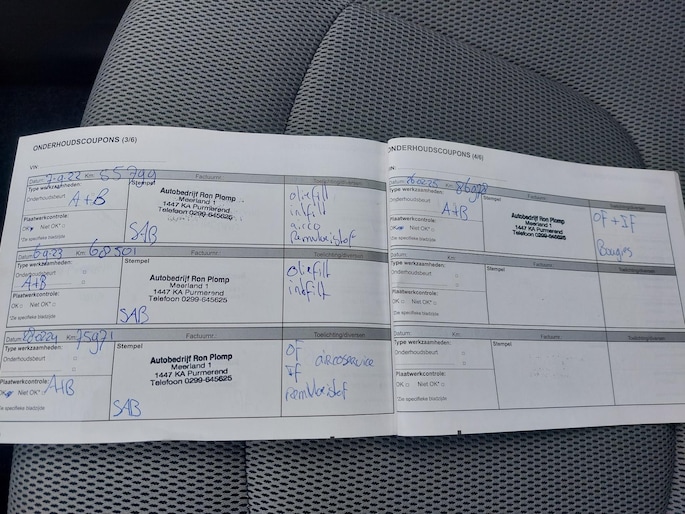 ONDERHOUDSCOUPONS (3/6)
VIN:
Datum: 7-9-22 Km: 55799 Factuurnr: Toelichting/diversen
Type werkzaamheden:
Onderhoudsbeurt A+B
Plaatwerkcontrole:
OK Niet OK*:
*Zie specifieke bladzijde
Stempel
Autobedrijf Ron Plomp
Meerland 1
1447 KA Purmerend
Telefoon 0299-645625
SAB
oliefilt
intfilt
airco
Remvloeistof
Datum: Km: 68501 Factuurnr: Toelichting/diversen
Type werkzaamheden:
Onderhoudsbeurt
A+B
Plaatwerkcontrole:
OK Niet OK*:
*Zie specifieke bladzijde
Stempel
Autobedrijf Ron Plomp
Meerland 1
1447 KA Purmerend
Telefoon 0299-645625
SAB
oliefilt
intfilt
Datum: Km: 75971 Factuurnr: Toelichting/diversen
Type werkzaamheden:
Onderhoudsbeurt
Plaatwerkcontrole:
OK Niet OK*: A+B
*Zie specifieke bladzijde
Stempel
Autobedrijf Ron Plomp
Meerland 1
1447 KA Purmerend
Telefoon 0299-645625
SAB
OF aircoservice
IF
Remvloeistof
ONDERHOUDSCOUPONS (4/6)
VIN:
Datum: Km:
Type werkzaamheden:
Onderhoudsbeurt A+B
Plaatwerkcontrole:
OK Niet OK*:
*Zie specifieke bladzijde
Stempel
Autobedrijf Ron Plomp
Meerland 1
1447 KA Purmerend
Telefoon 0299-645625
SAB
OF + IF
Bougies
Datum: Km: Factuurnr: Toelichting/diversen
Type werkzaamheden:
Onderhoudsbeurt
Plaatwerkcontrole:
OK Niet OK*:
*Zie specifieke bladzijde
Stempel
Datum: Km: Factuurnr: Toelichting/diversen
Type werkzaamheden:
Onderhoudsbeurt
Plaatwerkcontrole:
OK Niet OK*:
*Zie specifieke bladzijde
Stempel